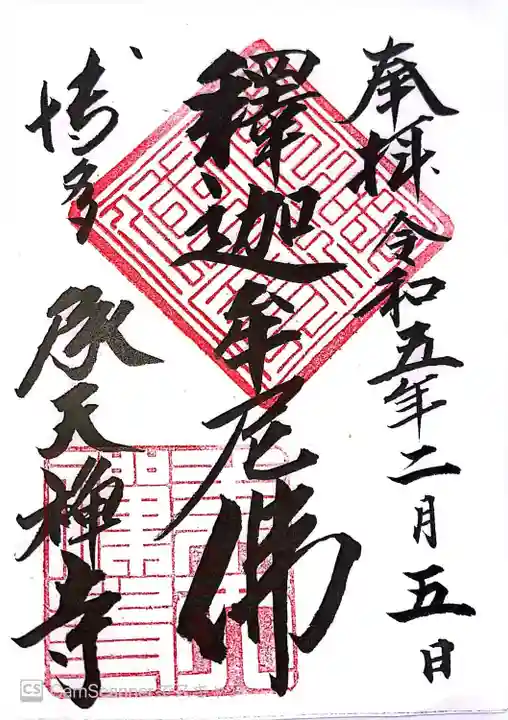 奉拝 令和五年二月五日
釋迦牟尼佛
博多 承天禅寺
CS CamScanner